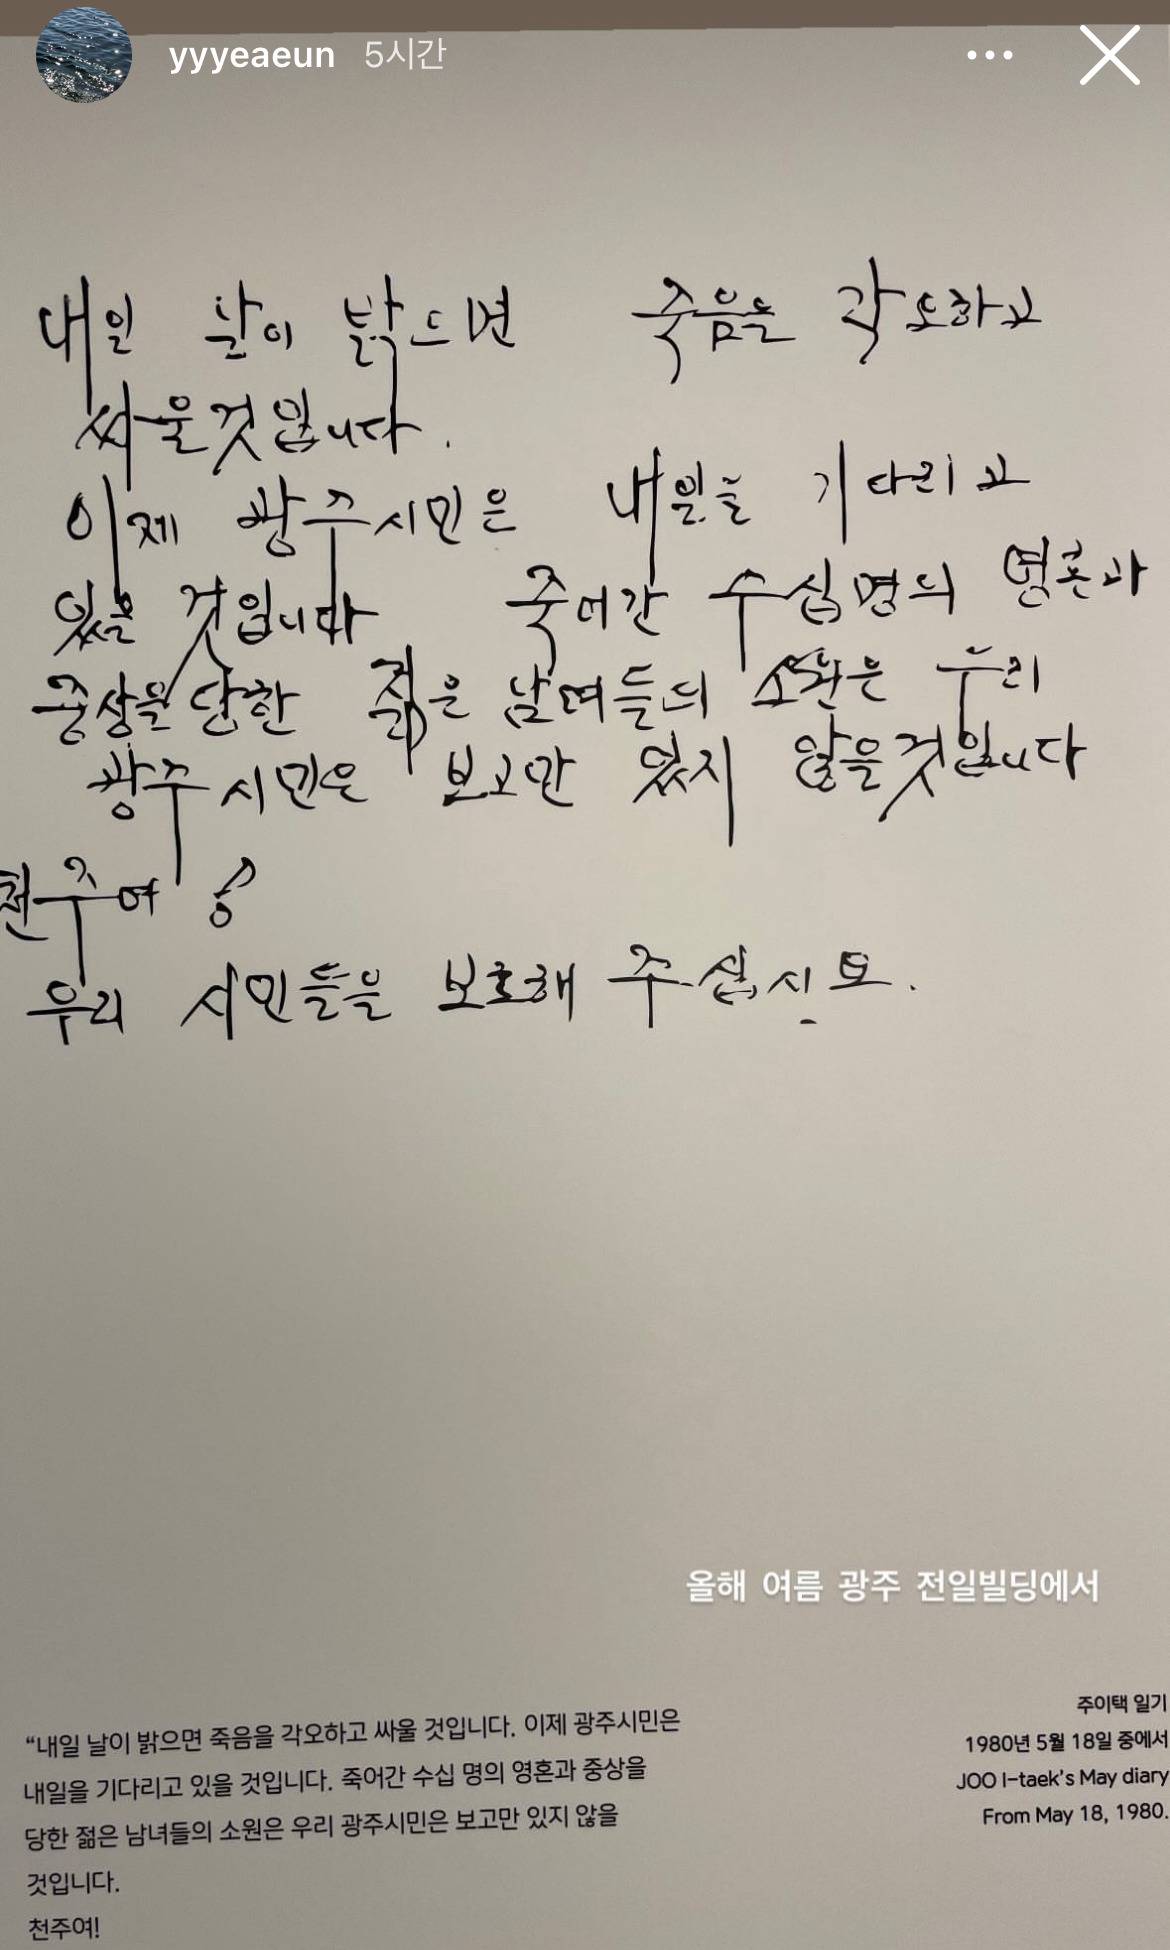 yyyeaeun 5시간
내일 날이 밝으면 죽음을 각오하고
싸울것입니다.
이제 광주시민은 내일을 기다리고
있을 것입니다 죽어간 수십명의 영혼과
중상을 당한 젊은 남여들의 소원은 우리
광주시민은 보고만 있지 않을것입니다
천주여
우리 시민들을 보호해 주십시요.
올해 여름 광주 전일빌딩에서
“내일 날이 밝으면 죽음을 각오하고 싸울 것입니다. 이제 광주시민은
내일을 기다리고 있을 것입니다. 죽어간 수십 명의 영혼과 중상을
당한 젊은 남녀들의 소원은 우리 광주시민은 보고만 있지 않을
것입니다.
천주여!
주이택 일기
1980년 5월 18일 중에서
JOO I-taek’s May diary
From May 18, 1980.